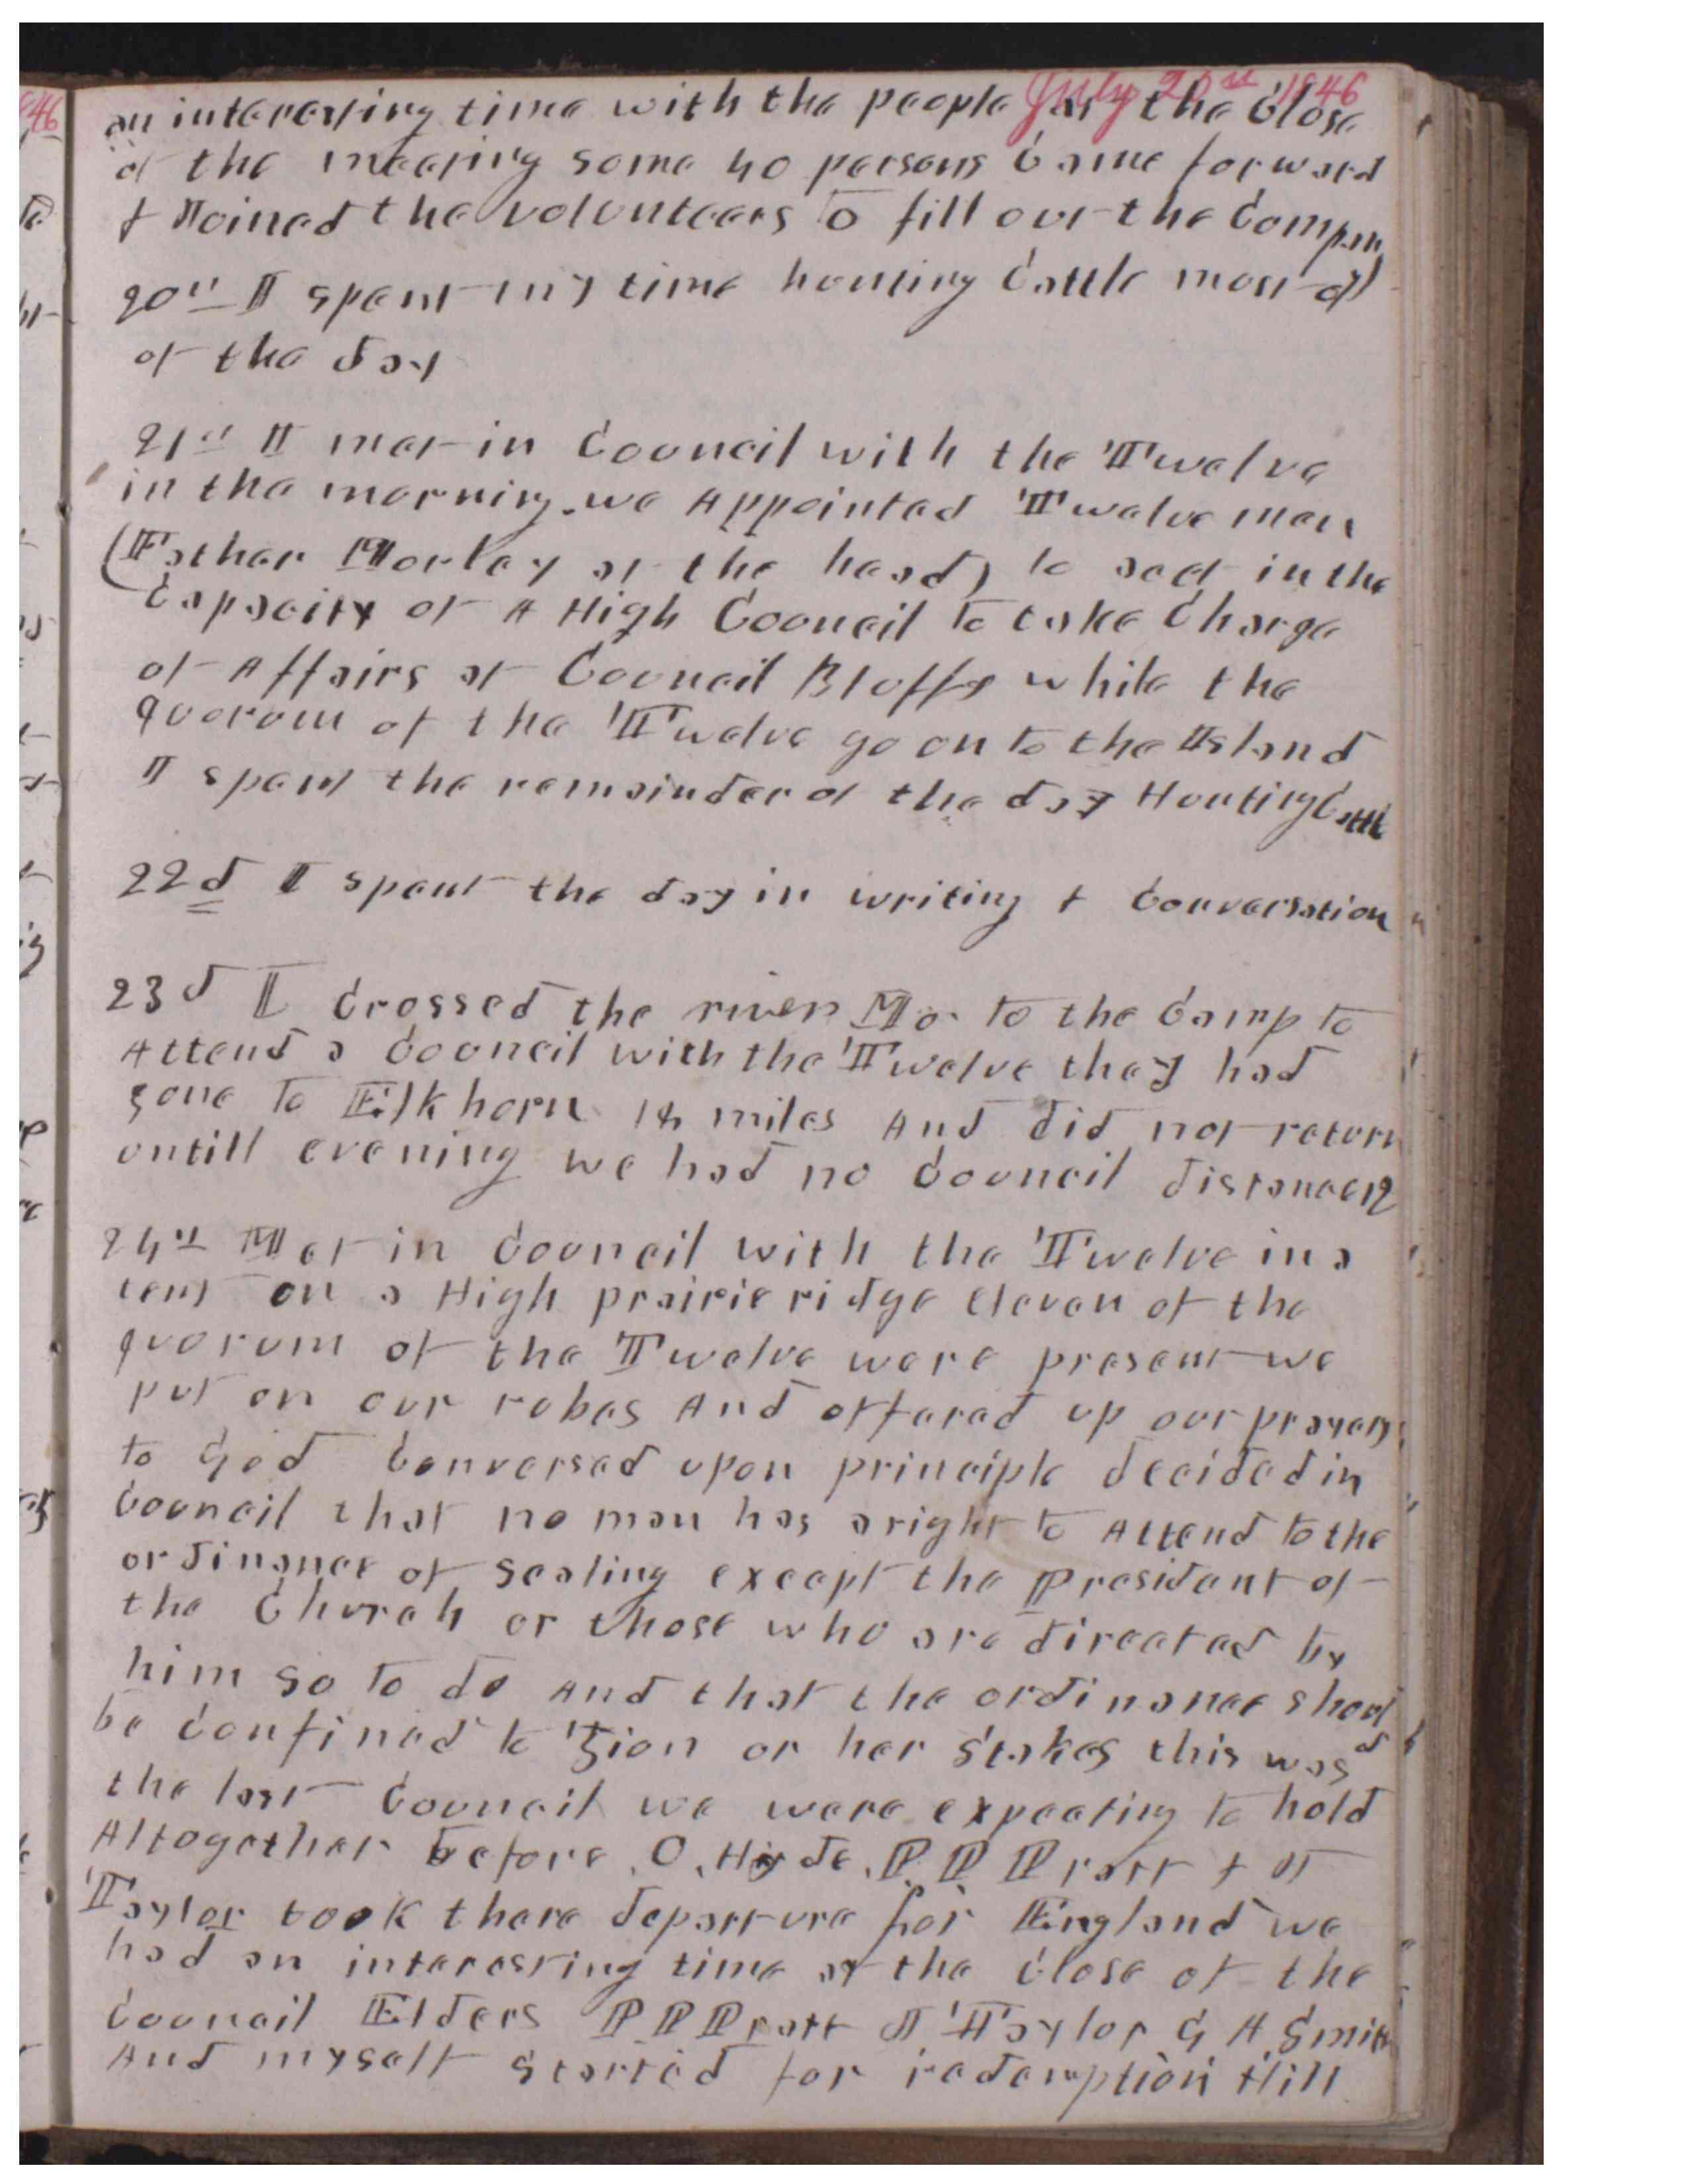 July 20th 1846
an interesting time with the people at the Close
of the meeting some 40 persons Came forward
& Joined the volunteers to fill out the Compan
20th I spent my time hunting Cattle most of
of the day
21st I met in Council with the Twelve
in the morning. we Appointed Twelve men
(Father Morley at the head) to act in the
Capacity of A High Council to take Charge
of Affairs at Council Bluffs while the
quorum of the Twelve go on to the Island
I spent the remainder of the day Hunting Cattle
22d I spent the day in writing & Conversation
23d I Crossed the river Mo. to the Camp to
Attend a Council with the Twelve they had
gone to Elk horn 14 miles And did not return
untill evening we had no Council distance 12
24th Met in Council with the Twelve in a
tent on a High prairie ridge eleven of the
quorum of the Twelve were present we
put on our robes And offered up our prayers
to God Conversed upon principle decided in
Council that no man has a right to Attend to the
ordinance of sealing except the President of
the Church or those who are directed by
him so to do And that the ordinance should
be Confined to Zion or her Stakes this was
the last Council we were expecting to hold
Altogether before O. Hyde P P Pratt & J
Taylor took there departure for England we
had an interesting time at the Close of the
Council Elders P P Pratt J Taylor G A Smith
And myself started for redemption Hill